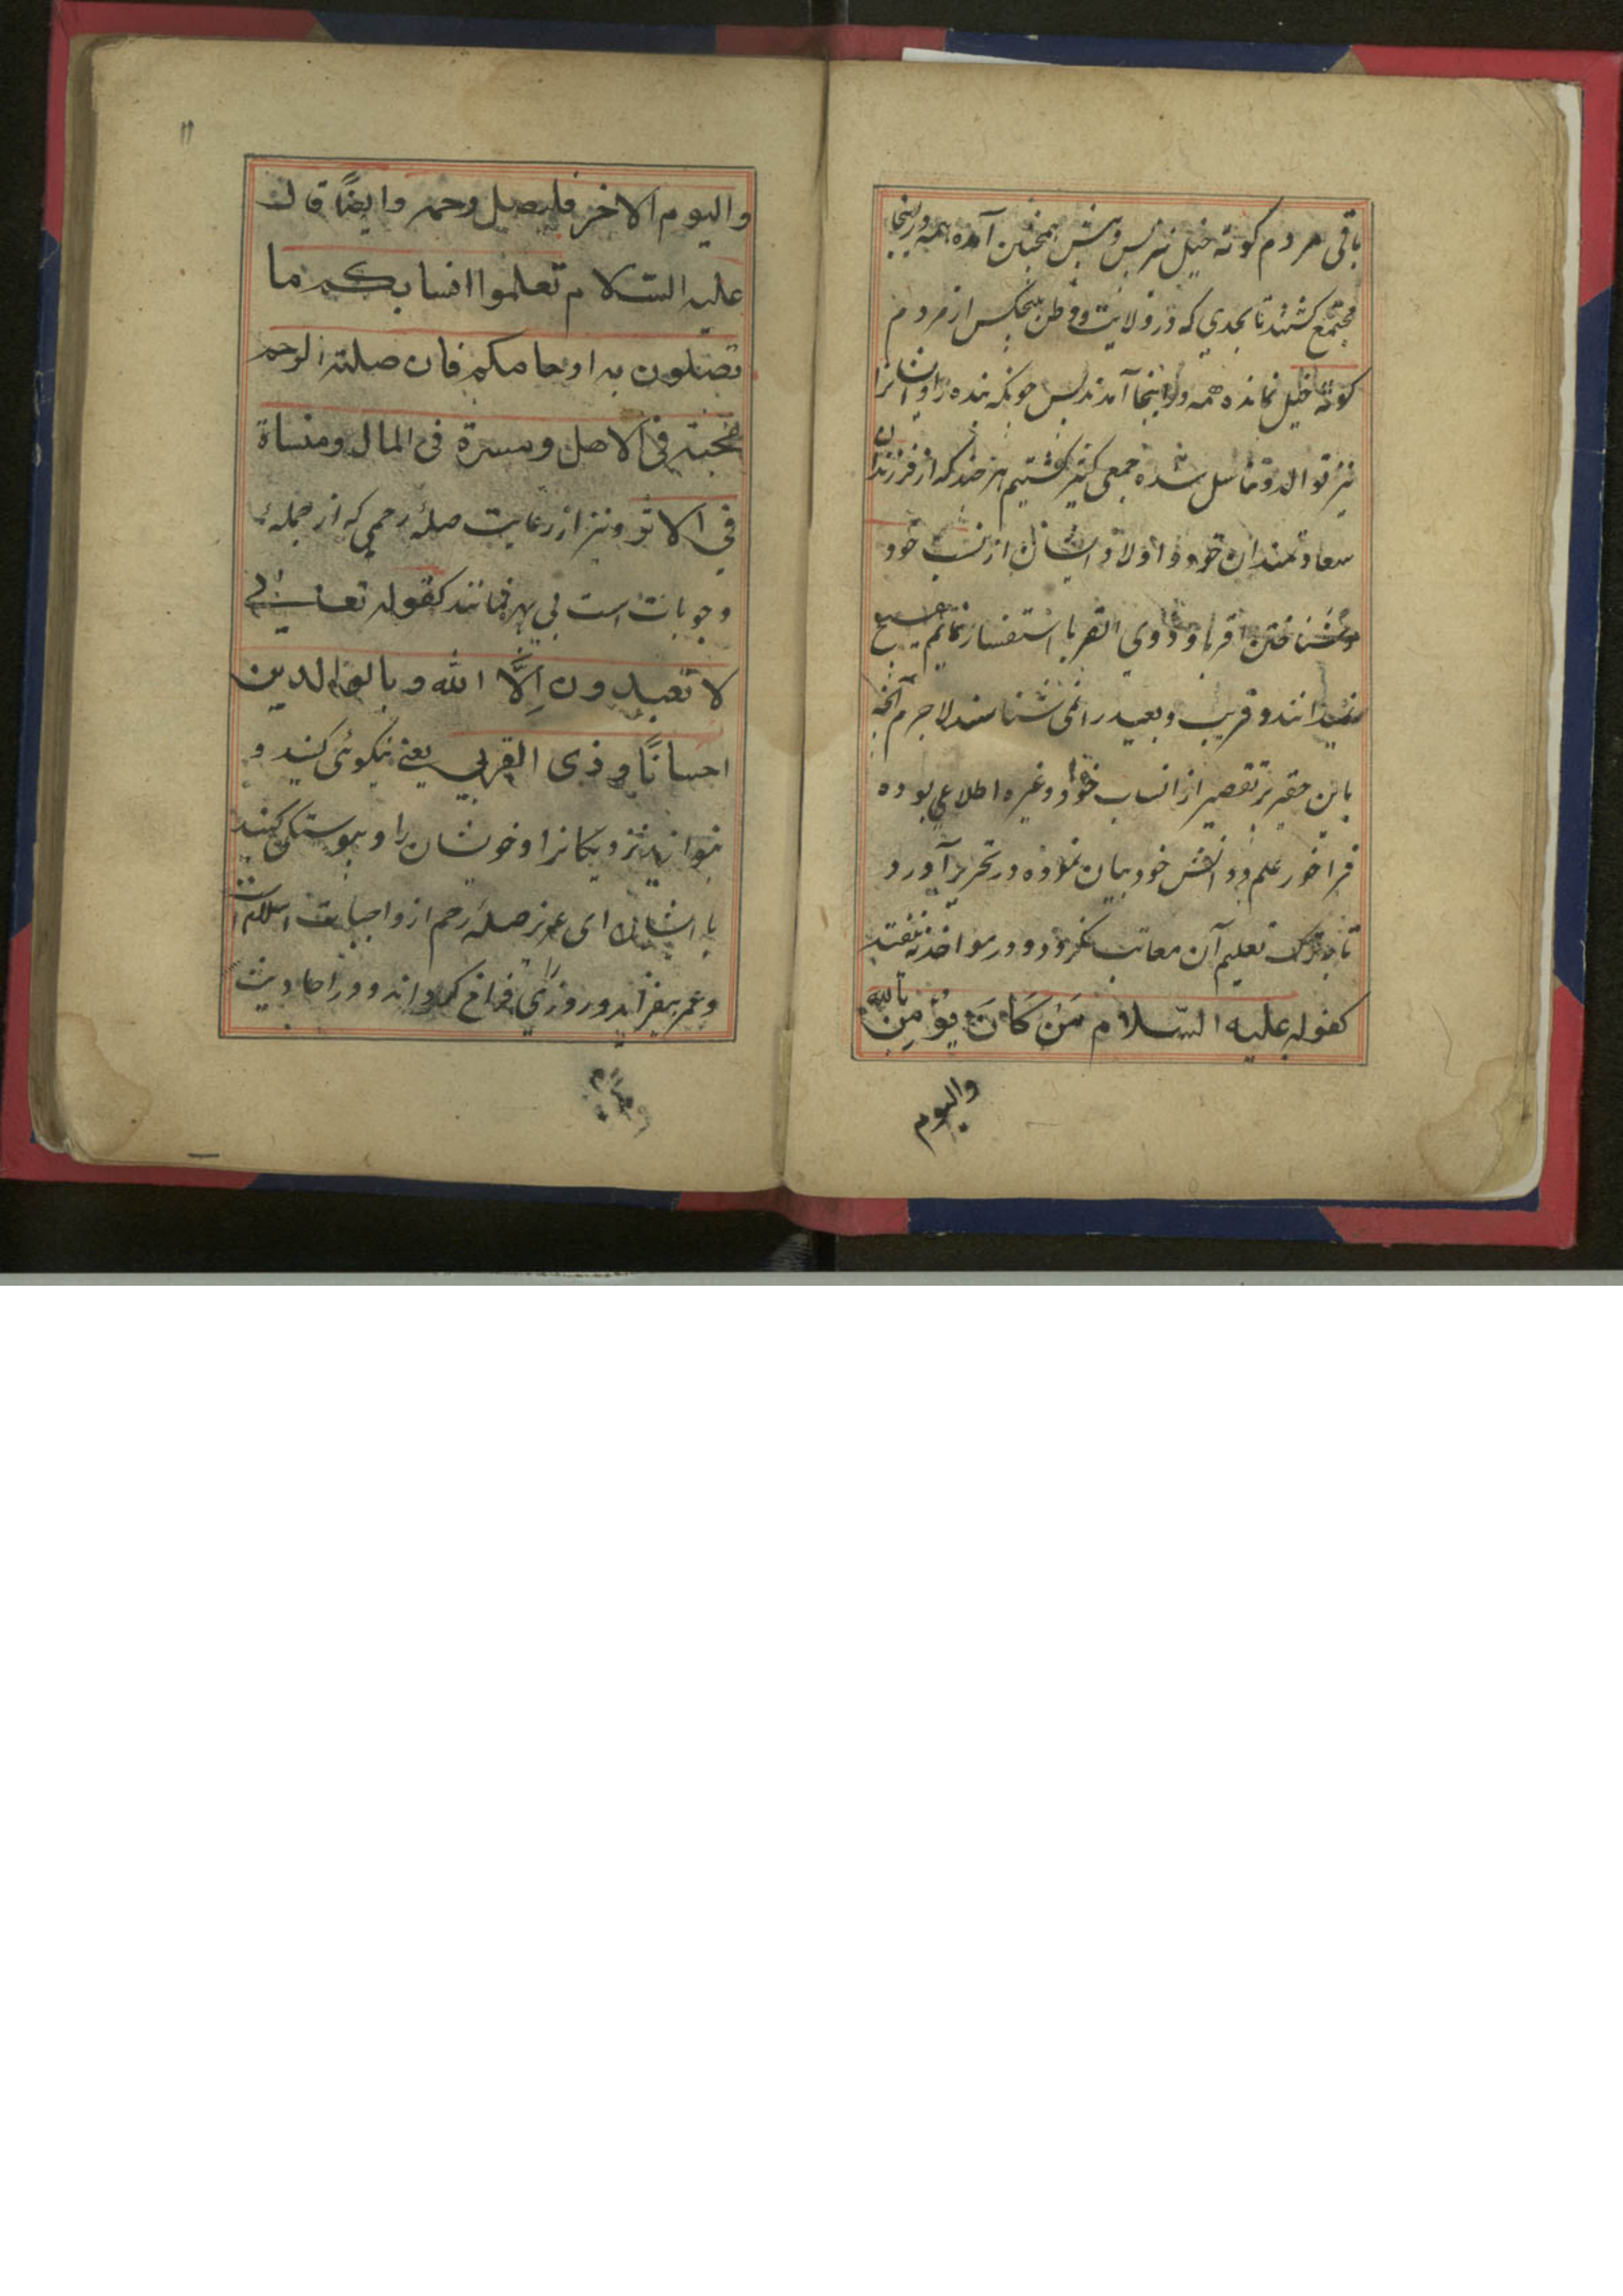 باقی مردم کوته خیل نیز پس و پیش همچنین آمده همه درینجا
مجتمع کشتند تا بحدی که در ولایت و وطن هیچکس از مردم
کوته خیل نمانده همه در اینجا آمدند پس چونکه بنده را و ایشانرا
نیز توالد و تناسل شده جمعی کثیر کشتیم هر چند که از فرزندان
سعادتمندان خود و اولاد ایشان از نسب خود
و شناختن اقربا و ذوی القربا استفسار نمایم هیچ
نمیدانند و قریب و بعید را نمی شناسند لاجرم آنچه
باین حقیر پر تقصیر از انساب خود و غیره اطلاعی بوده
فراخور علم و دانش خود بیان نموده در تحریر آورد
تا بترک تعلیم آن معاتب نکردد و در مواخذه نیفتد
کقوله علیه السّلام مَنْ کَانَ یُؤمِنُ بالله
والیوم
۱۱
والیوم الاخر فلیصل رحمه وایضًا قال
علیه السّلام تعلموا انسابکم ما
تصلون به ارحامکم فان صلة الرحم
محبة فی الاهل ومسرة فی المال ومنساة
فی الاثر و نیز از رعایت صلۀ رحمی که از جملۀ
وجوبات است بی بهره نمانند کقوله تعالی
لا تعبدون اِلَّا الله وبالوالدین
احسانًا و ذی القربی یعنی نیکوئی کنید و
بنوازید نزدیکانرا و خویشان را و پیوستگی کنید
با ایشان ای عزیز صلۀ رحم از واجبات اسلام است
و عمر بیفزاید و روزی فراخ کرداند و در احادیث